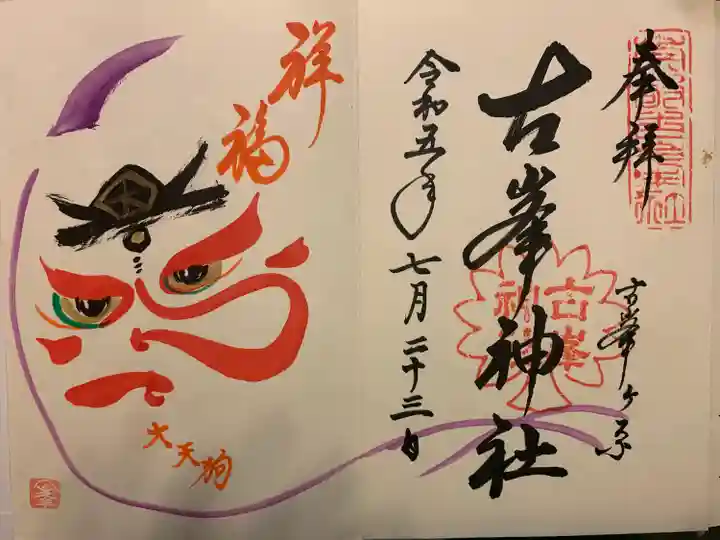 奉拝
古峯ヶ原
古峯神社
令和五年七月二十三日
祥福
大天狗